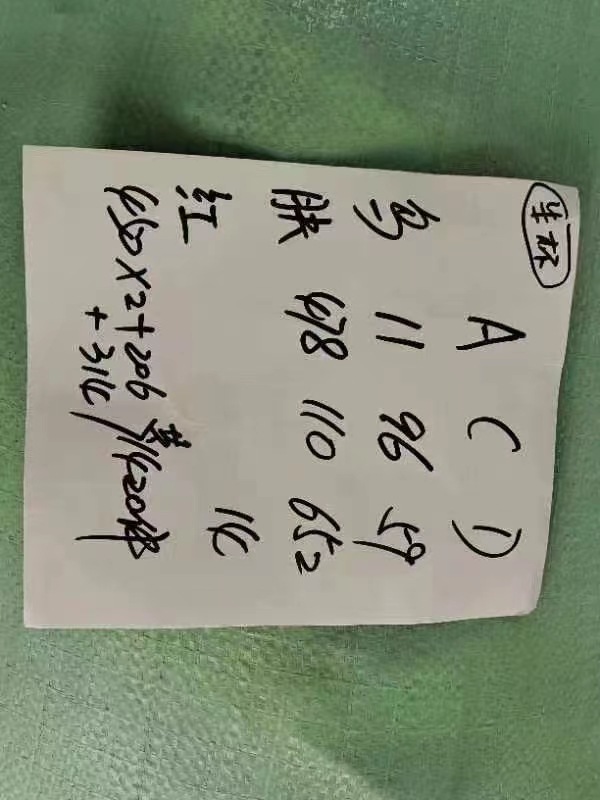 半杯
A C D
乌 11 96 59
肤 478 110 652
红 14
450×2+206
+314 共1420件